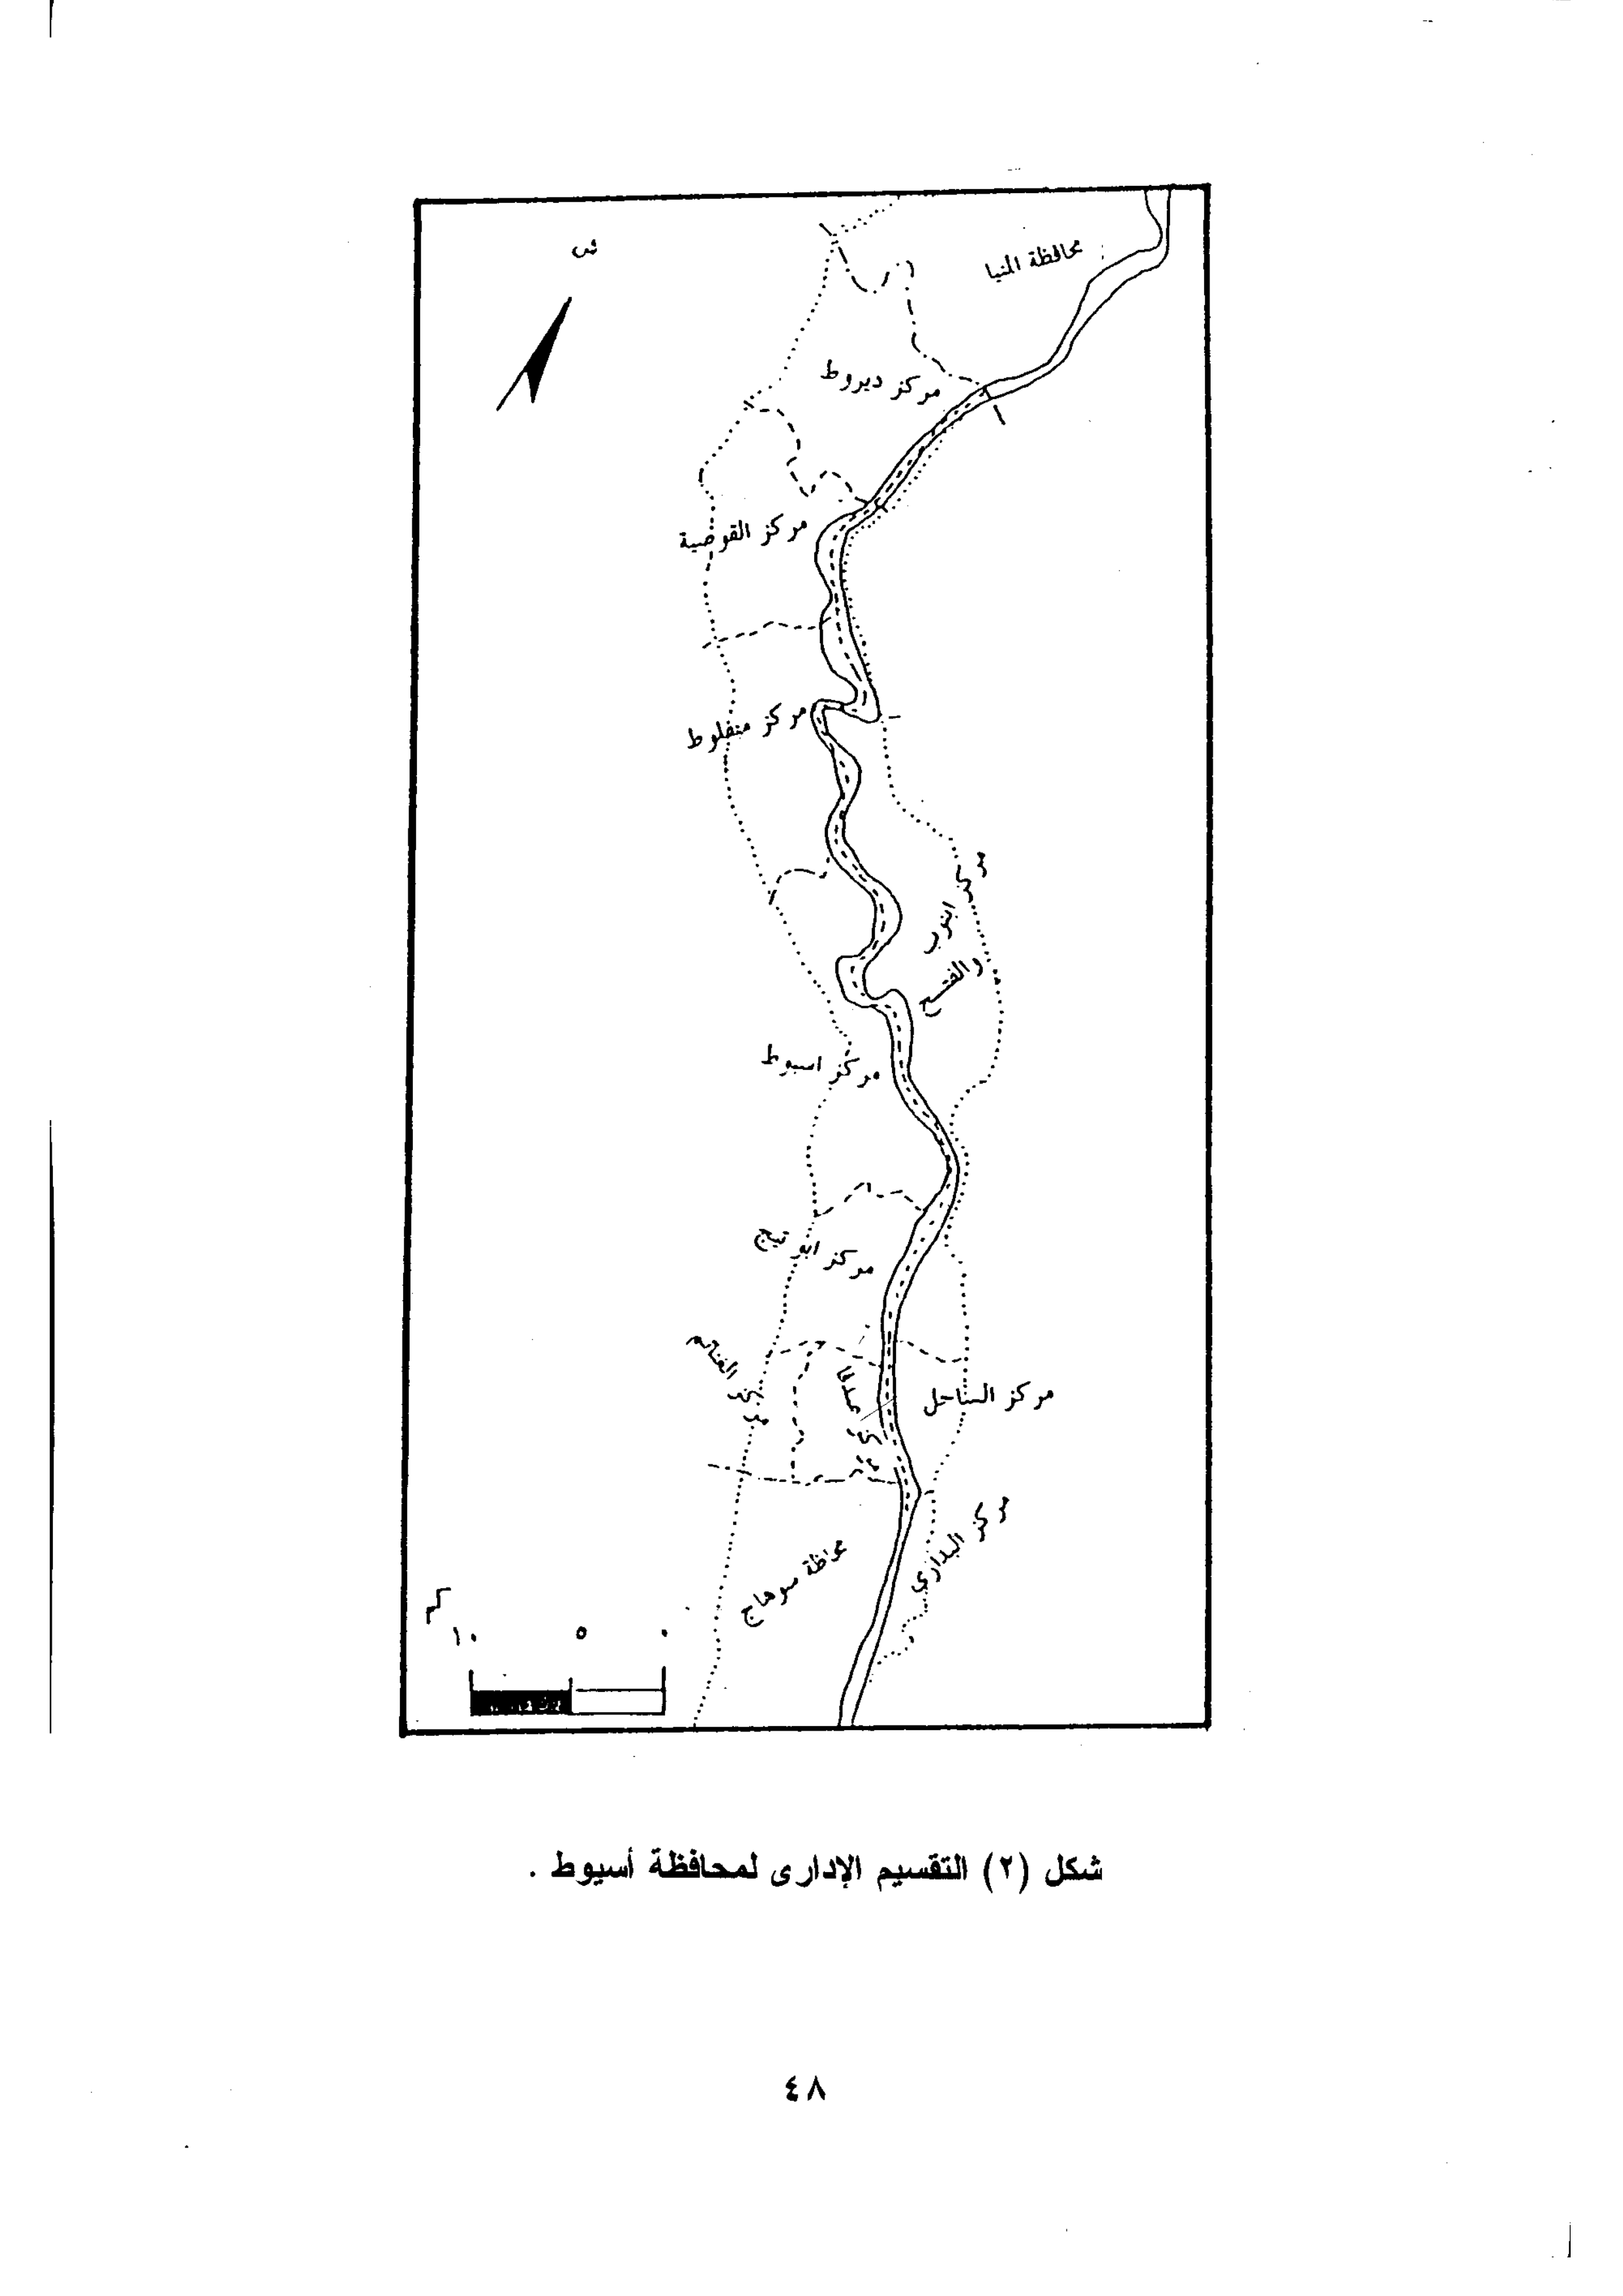 محافظة المنيا
ش
مركز ديروط
مركز القوصية
مركز منفلوط
مركز ابنوب
والفتح
مركز اسيوط
مركز ابو تيج
مركز الغنايم
مركز صدفا
مركز الساحل
مركز البداري
محافظة سوهاج
كم
١٠ ٥ ٠
شكل (٢) التقسيم الإدارى لمحافظة أسيوط .
٤٨